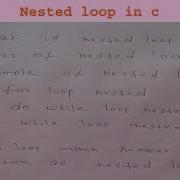 Nested loop in c
is nested loop
of nested loo
of nested l
for loop nested
do while loop
while loop nested
loop within Another
as nested l